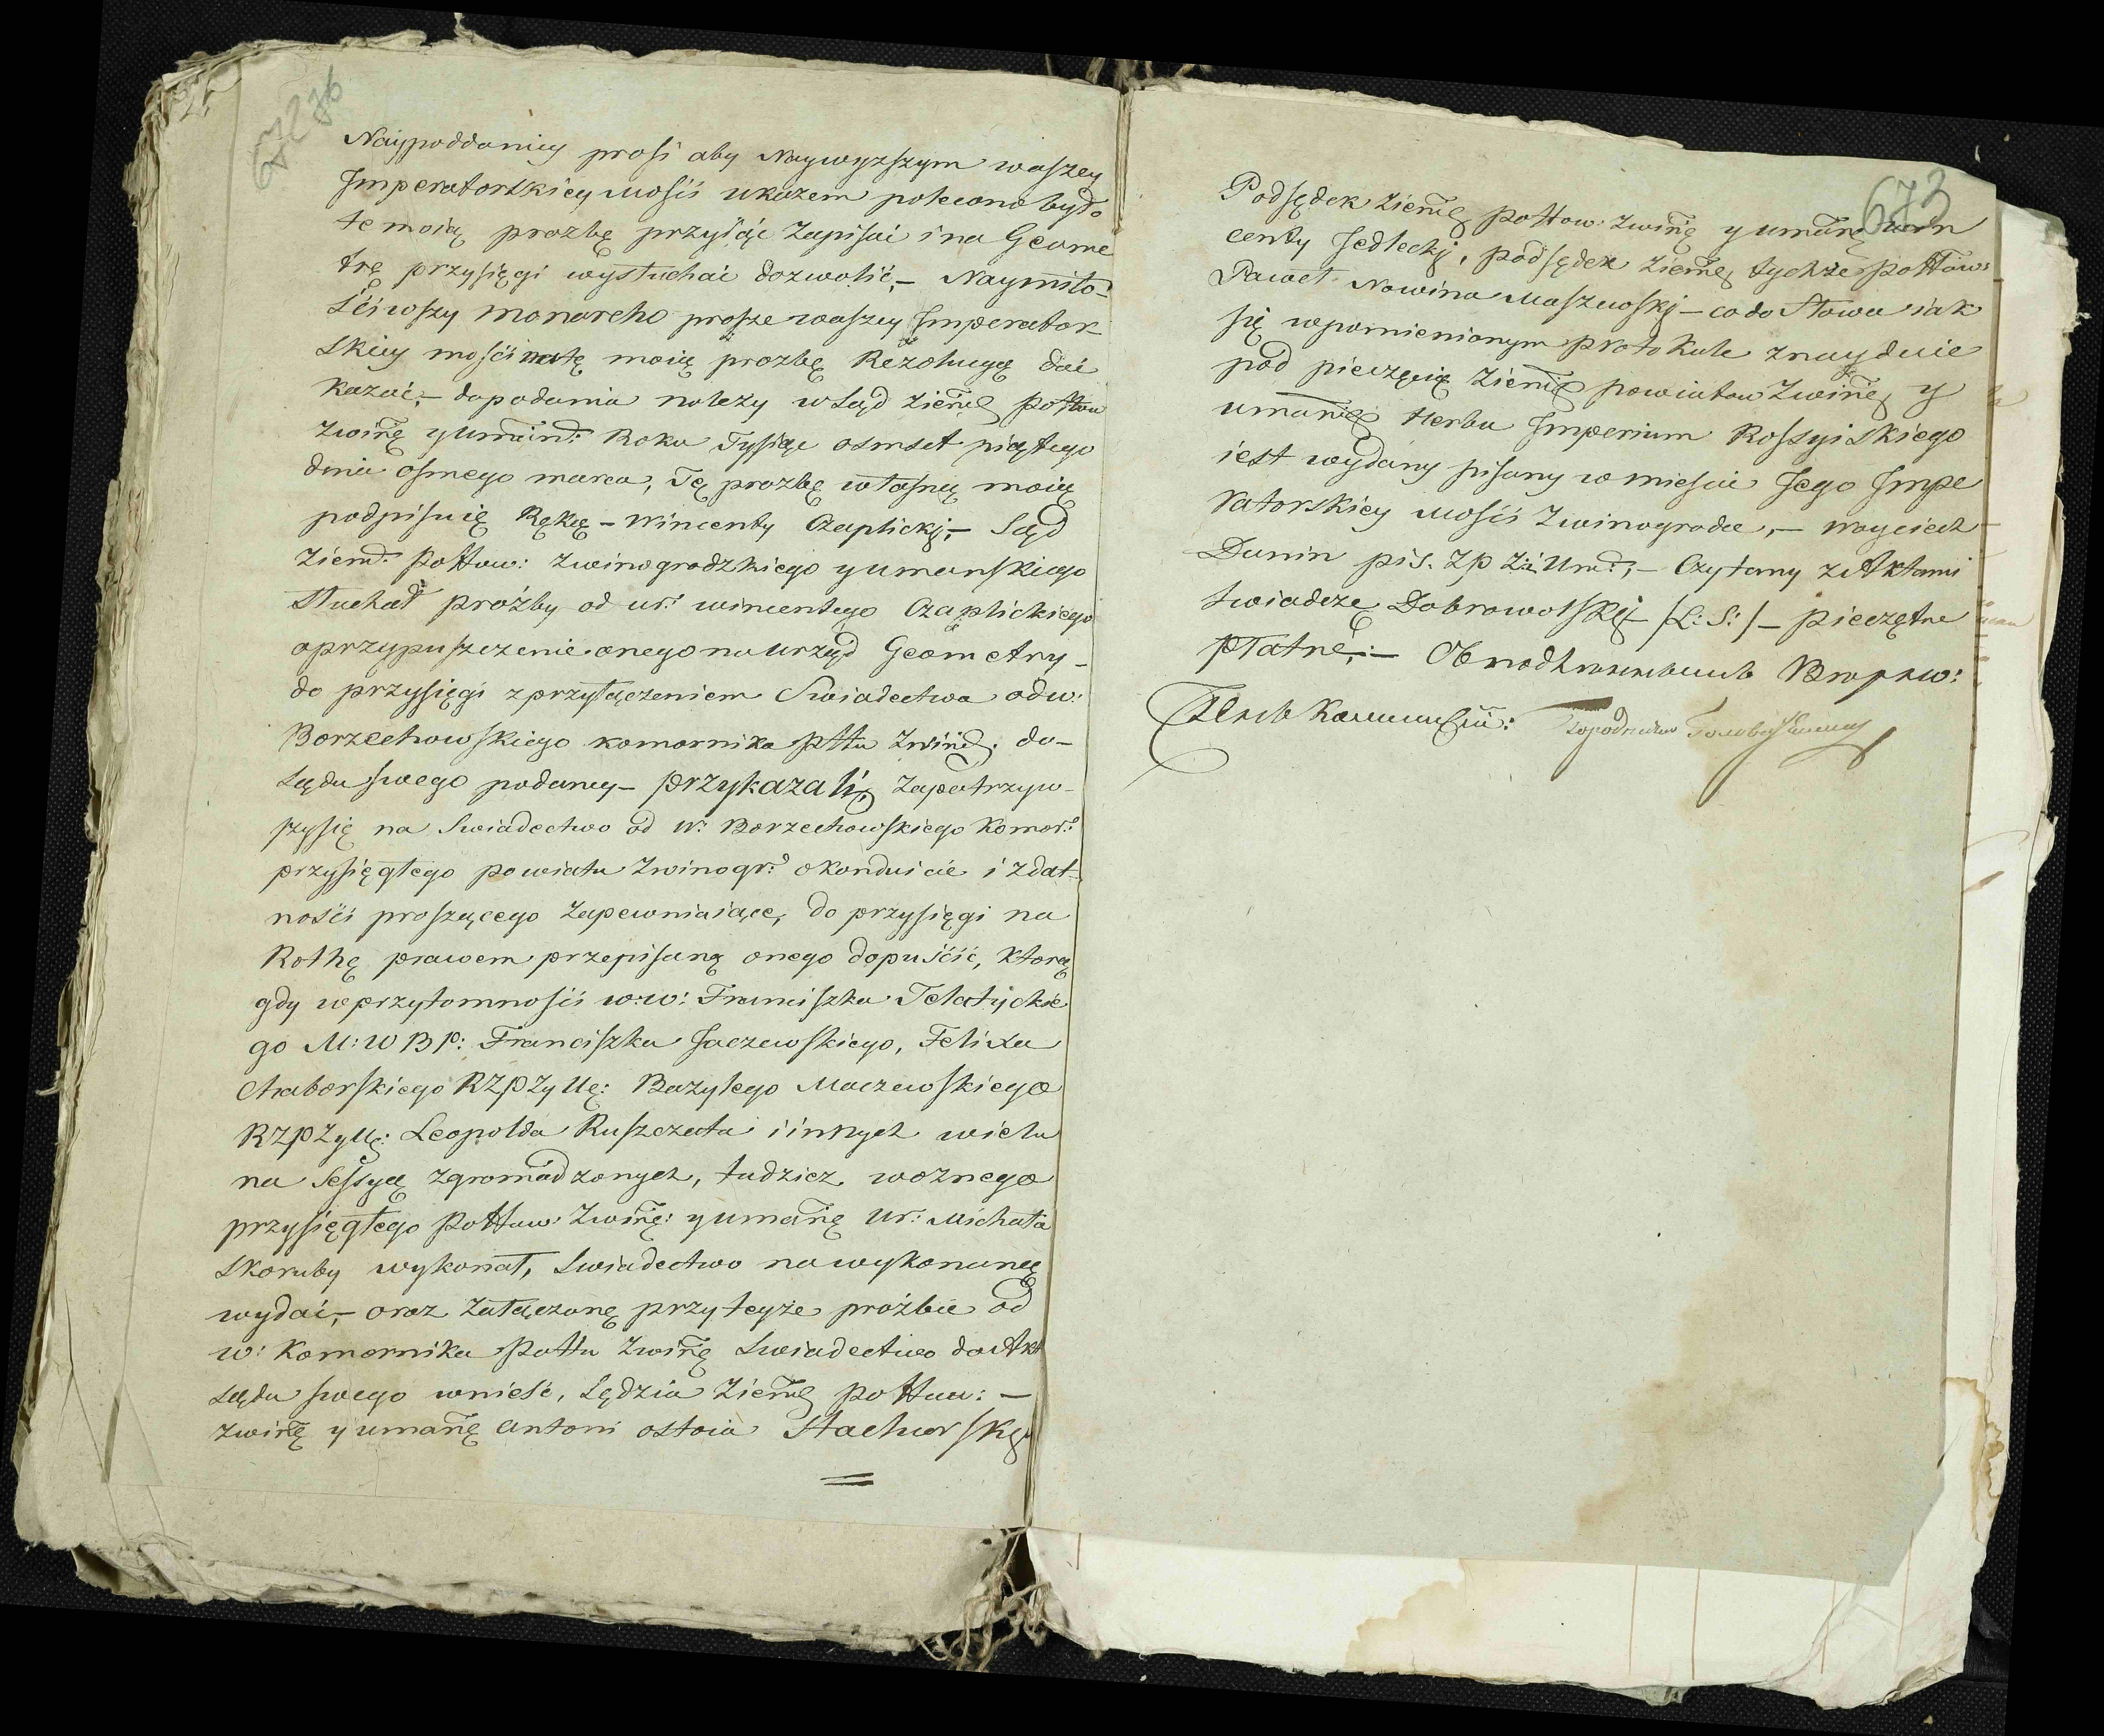 Naypoddaniey prosi aby Naywyzszym waszey
Imperatorskiey Mości ukazem polecono było
te moią prozbę przyiąć Zapisać i na Geome
trę przysięgi wysłuchać dozwolić,– Naymiło-
ściwszy Monarcho prosze waszey Imperator
skiey mości na tę moią prozbę Rezolucyą dać
kazać,– do podania należy w Sąd Ziemś pottow
Zwinę y Umań: Roku Tysiąc osmset piątego
dnia osmego marca, Tę prozbę własną moią
podpisuię Ręką – Wincenty Czaplickj,– Sąd
Ziem. Pottow: Zwinogrodzkiego y umanskiego
Słuchał proźby od ur: wincentego Czaplickiego
o przypuszczenie onego na urząd Geometry –
do przysięgi z przyłączeniem Swiadectwa od w:
Borzechowskiego komornika pttu Zwinę. do–
Sądu swego podaney – przykazali, Zapatrzyw–
szysię na Swiadectwo od W: Borzechowskiego Komor:
przysięgłego powiatu Zwinogr: o konduicie i zdat–
ności proszącego Zapewniaiące, do przysięgi na
Rothę prawem przepisaną onego dopuścić, którą
gdy w przytomności w:w: Franciszka Telatyckie
go M:W B P: Franciszka Jaczewskiego, Felixa
Chaborskiego RZPZyUę: Bazylego Maczewskiego
RZPZyUę: Leopolda Ruszczuta i innych wielu
na Sessyą zgromadzonych, tudziez woznego
przysięgłego Pottow: Zwinę: y umanę Ur: Michała
Skoruby wykonał, Swiadectwo na wykonaną
wydać,– oraz Załączone przy teyże proźbie od
w: Komornika Pottu Zwinę Swiadectwo do Akt
Sądu swego wnieść, Sędzia Ziemę pottow: –
Zwinę y umanę Antoni Ostoia Stachorskj
673
Podsędek Ziemę pottow: Zwinę y umanę Win
centy Jedleckj, podsędek Ziemę tychże pottow:
Paweł Nowina Maszewskj – co do Słowa iak
się wpomienionym protokule znayduie
pod pieczęcią Ziemę powiatow Zwinę y
umanę Herbu Imperium Rossyiskiego
iest wydany pisany w mieście Jego Impe
ratorskiey Mości Zwinogrodce,– Woyciech
Dunin pis. ZP Zi Umd:,– Czytany z Aktami
swiadczę Dobrowolskj – /L: S:/ – pieczętne
płatne,:–